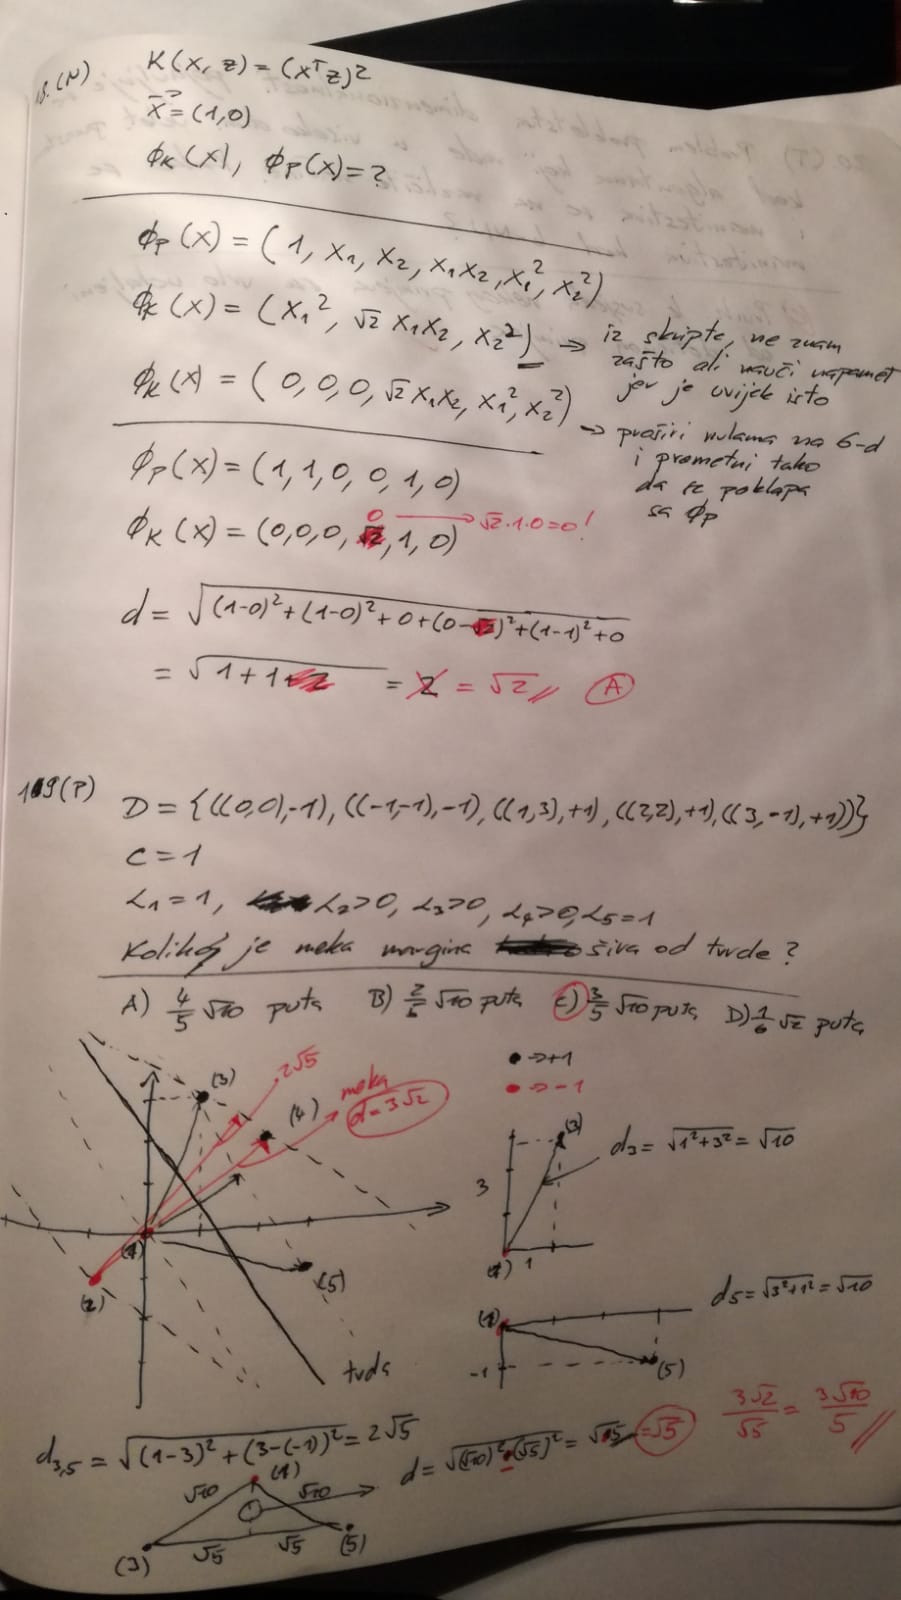 18.(N) K(x, z) = (xᵀz)²
x⃗ = (1,0)
ϕₖ(x), ϕₚ(x) = ?
ϕₚ(x) = (1, x₁, x₂, x₁x₂, x₁², x₂²)
ϕₖ(x) = (x₁², √2 x₁x₂, x₂²) → iz skripte, ne znam
zašto ali nauči napamet
jer je uvijek isto
ϕₖ(x) = (0, 0, 0, √2 x₁x₂, x₁², x₂²)
→ proširi nulama na 6-d
i prometni tako
da se poklapa
sa ϕₚ
ϕₚ(x) = (1, 1, 0, 0, 1, 0)
0 → √2·1·0=0!
ϕₖ(x) = (0,0,0, √2, 1, 0)
d = √(1-0)²+(1-0)²+0+(0-√2)²+(1-1)²+0
= √1+1+2 = 2 = √2 // (A)
(P) D = {((0,0),-1), ((-1,-1),-1), ((1,3),+1), ((2,2),+1), ((3,-1),+1))}
C = 1
α₁ = 1, α₂>0, α₃>0, α₄>0, α₅=1
je meka margina šira od tvrde?
A) 4/5 √10 puta B) √10 puta C) 3/5 √10 puta D) 1/6 √2 puta
• ⇒ +1
• ⇒ -1
2√5
meka
d = 3√2
(3)
(4)
(1)
(2)
(5)
tvrda
(3)
3
(1) 1
d₃ = √1²+3² = √10
(1)
-1
(5)
d₅ = √3²+1² = √10
d₃,₅ = √(1-3)² + (3-(-1))² = 2√5
d = √(√10)²-(√5)² = √15 = √5
3√2/√5 = 3√10/5 //
(1)
√10 √10
(3) √5 √5 (5)